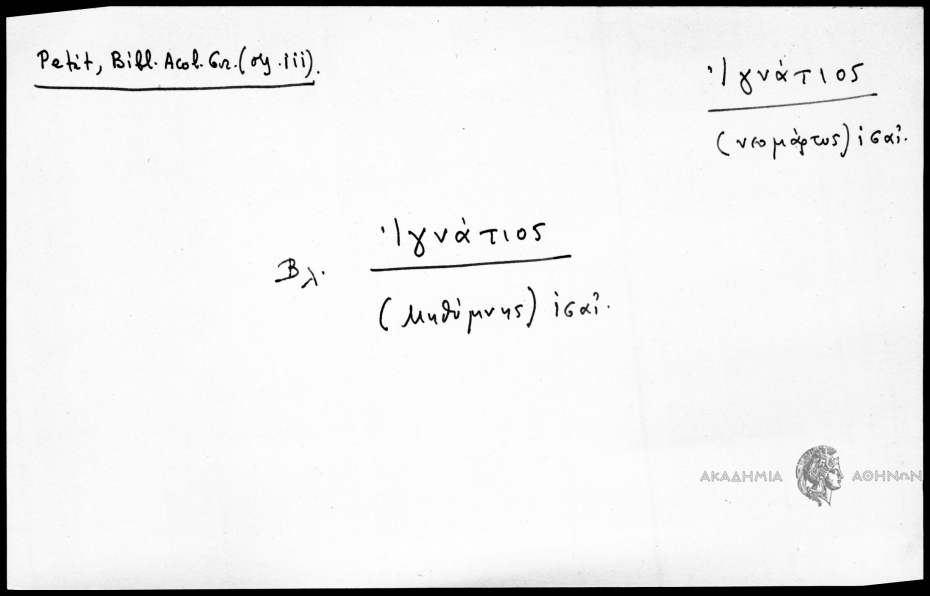 Petit, Bibl. Acol. Gr. (σχ. iii).
Ἰγνάτιος
(νεομάρτυς) ἰσαΐ.
Βλ. Ἰγνάτιος
(Μηθύμνης) ἰσαΐ.
ΑΚΑΔΗΜΙΑ ΑΘΗΝΩΝ